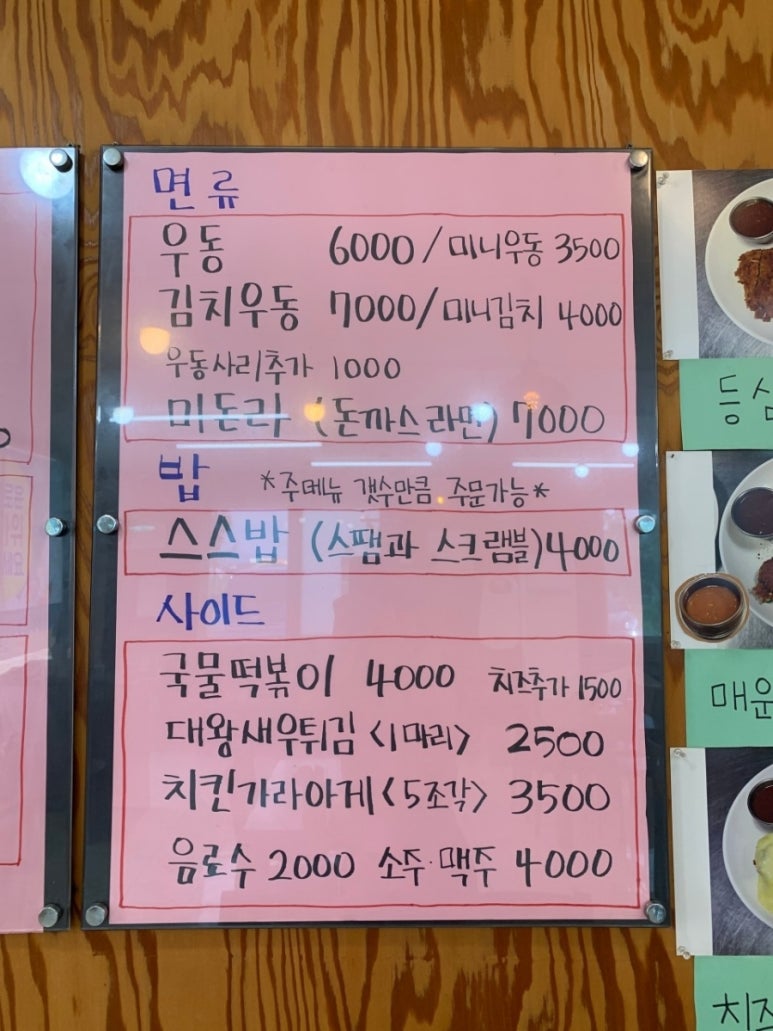 면류
우동 6000 / 미니우동 3500
김치우동 7000 / 미니김치 4000
우동사리추가 1000
미돈라 (돈까스라면) 7000
밥 *주메뉴 갯수만큼 주문가능*
스스밥 (스팸과 스크램블) 4000
사이드
국물떡볶이 4000 치즈추가 1500
대왕새우튀김 <1마리> 2500
치킨가라아게 <5조각> 3500
음료수 2000 소주·맥주 4000
등심
매운